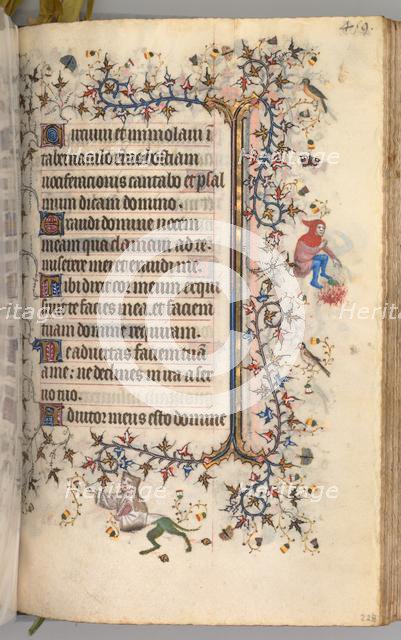 419.
Circuivi et immolavi i
tabernaculo eius hostiam
vociferationis cantabo et psal
mum dicam domino.
Exaudi domine vocem
meam qua clamavi ad te
miserere mei et exaudi me.
Tibi dixit cor meum exqui
sivit te facies mea et faciem
tuam domine requiram.
Ne advertas faciem tuā
a me: ne declines in ira a ser
vo tuo.
Adiutor meus esto domine
228
Heritage